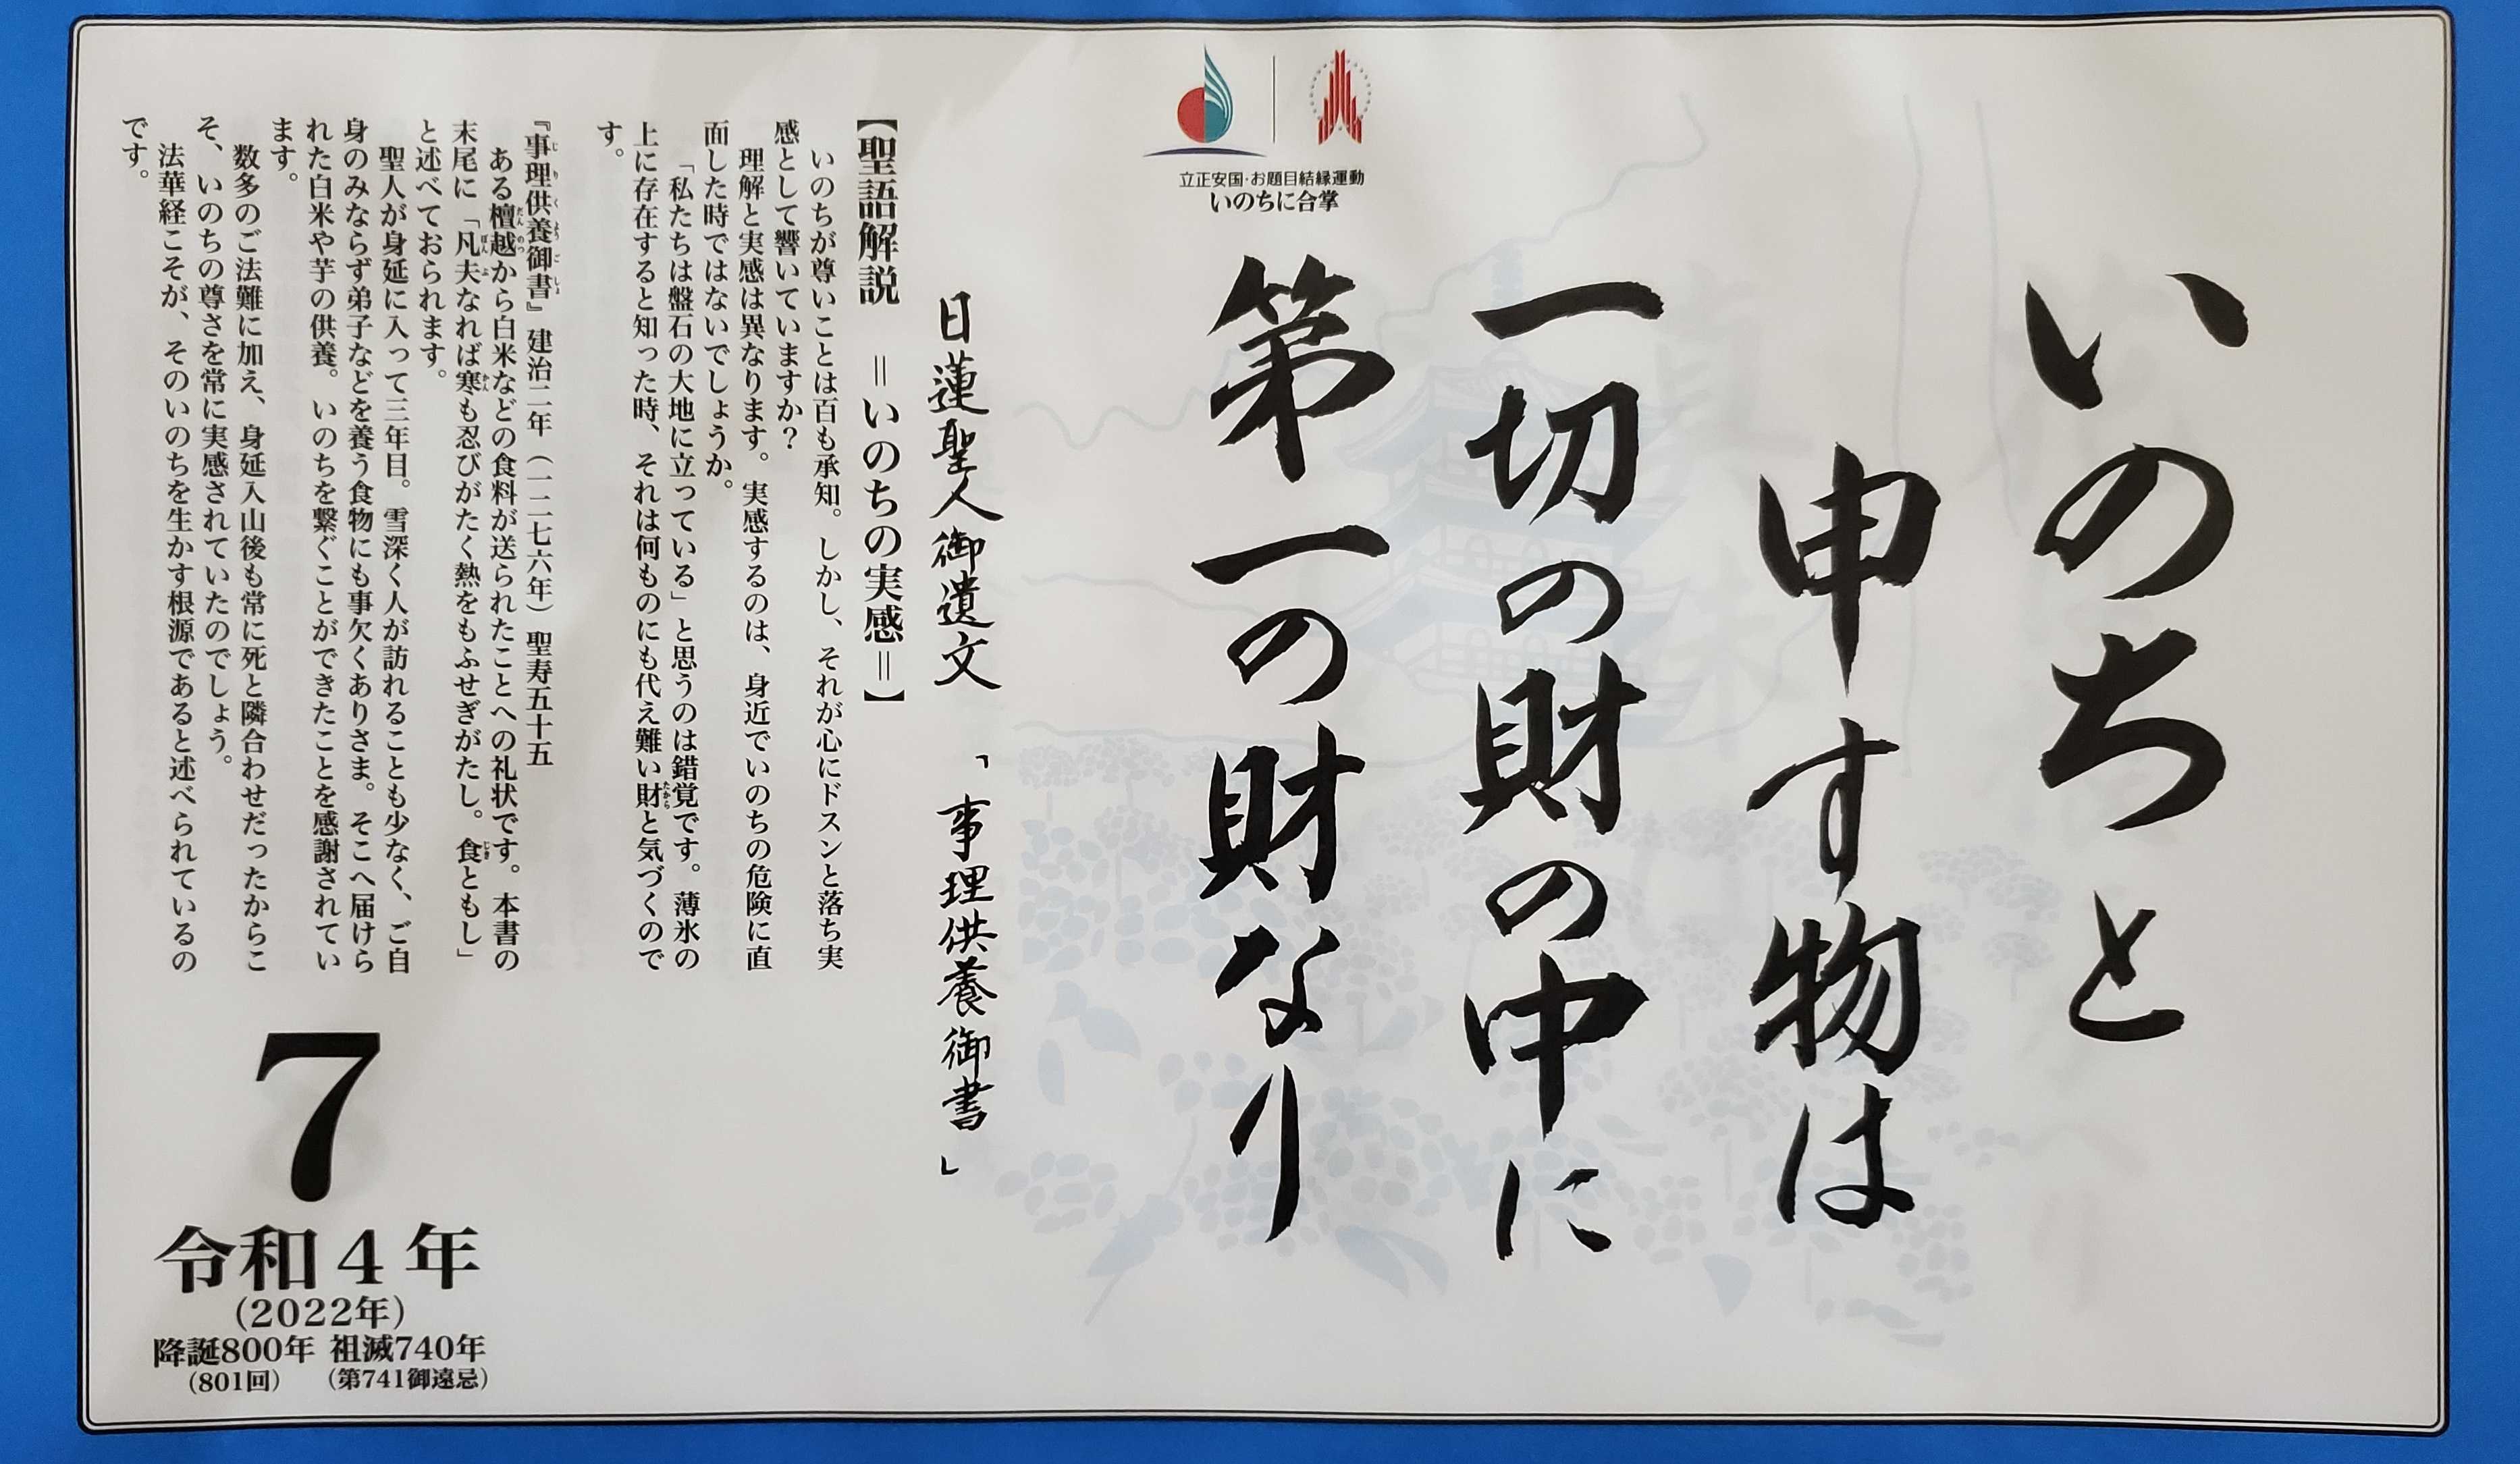 いのちと
申す物は
一切の財の中に
第一の財なり
立正安国・お題目結縁運動
いのちに合掌
日蓮聖人御遺文 「事理供養御書」
【聖語解説 ＝いのちの実感＝】
いのちが尊いことは百も承知。しかし、それが心にドスンと落ち実
感として響いていますか？
理解と実感は異なります。実感するのは、身近でいのちの危険に直
面した時ではないでしょうか。
「私たちは盤石の大地に立っている」と思うのは錯覚です。薄氷の
上に存在すると知った時、それは何ものにも代え難い財と気づくので
す。
『事理供養御書』 建治二年（一二七六年）聖寿五十五
ある檀越から白米などの食料が送られたことへの礼状です。本書の
末尾に「凡夫なれば寒も忍びがたく熱をもふせぎがたし。食ともし」
と述べておられます。
聖人が身延に入って三年目。雪深く人が訪れることも少なく、ご自
身のみならず弟子などを養う食物にも事欠くありさま。そこへ届けら
れた白米や芋の供養。いのちを繋ぐことができたことを感謝されてい
ます。
数多のご法難に加え、身延入山後も常に死と隣合わせだったからこ
そ、いのちの尊さを常に実感されていたのでしょう。
法華経こそが、そのいのちを生かす根源であると述べられているの
です。
7
令和4年
（2022年）
降誕800年 祖滅740年
（801回） （第741御遠忌）